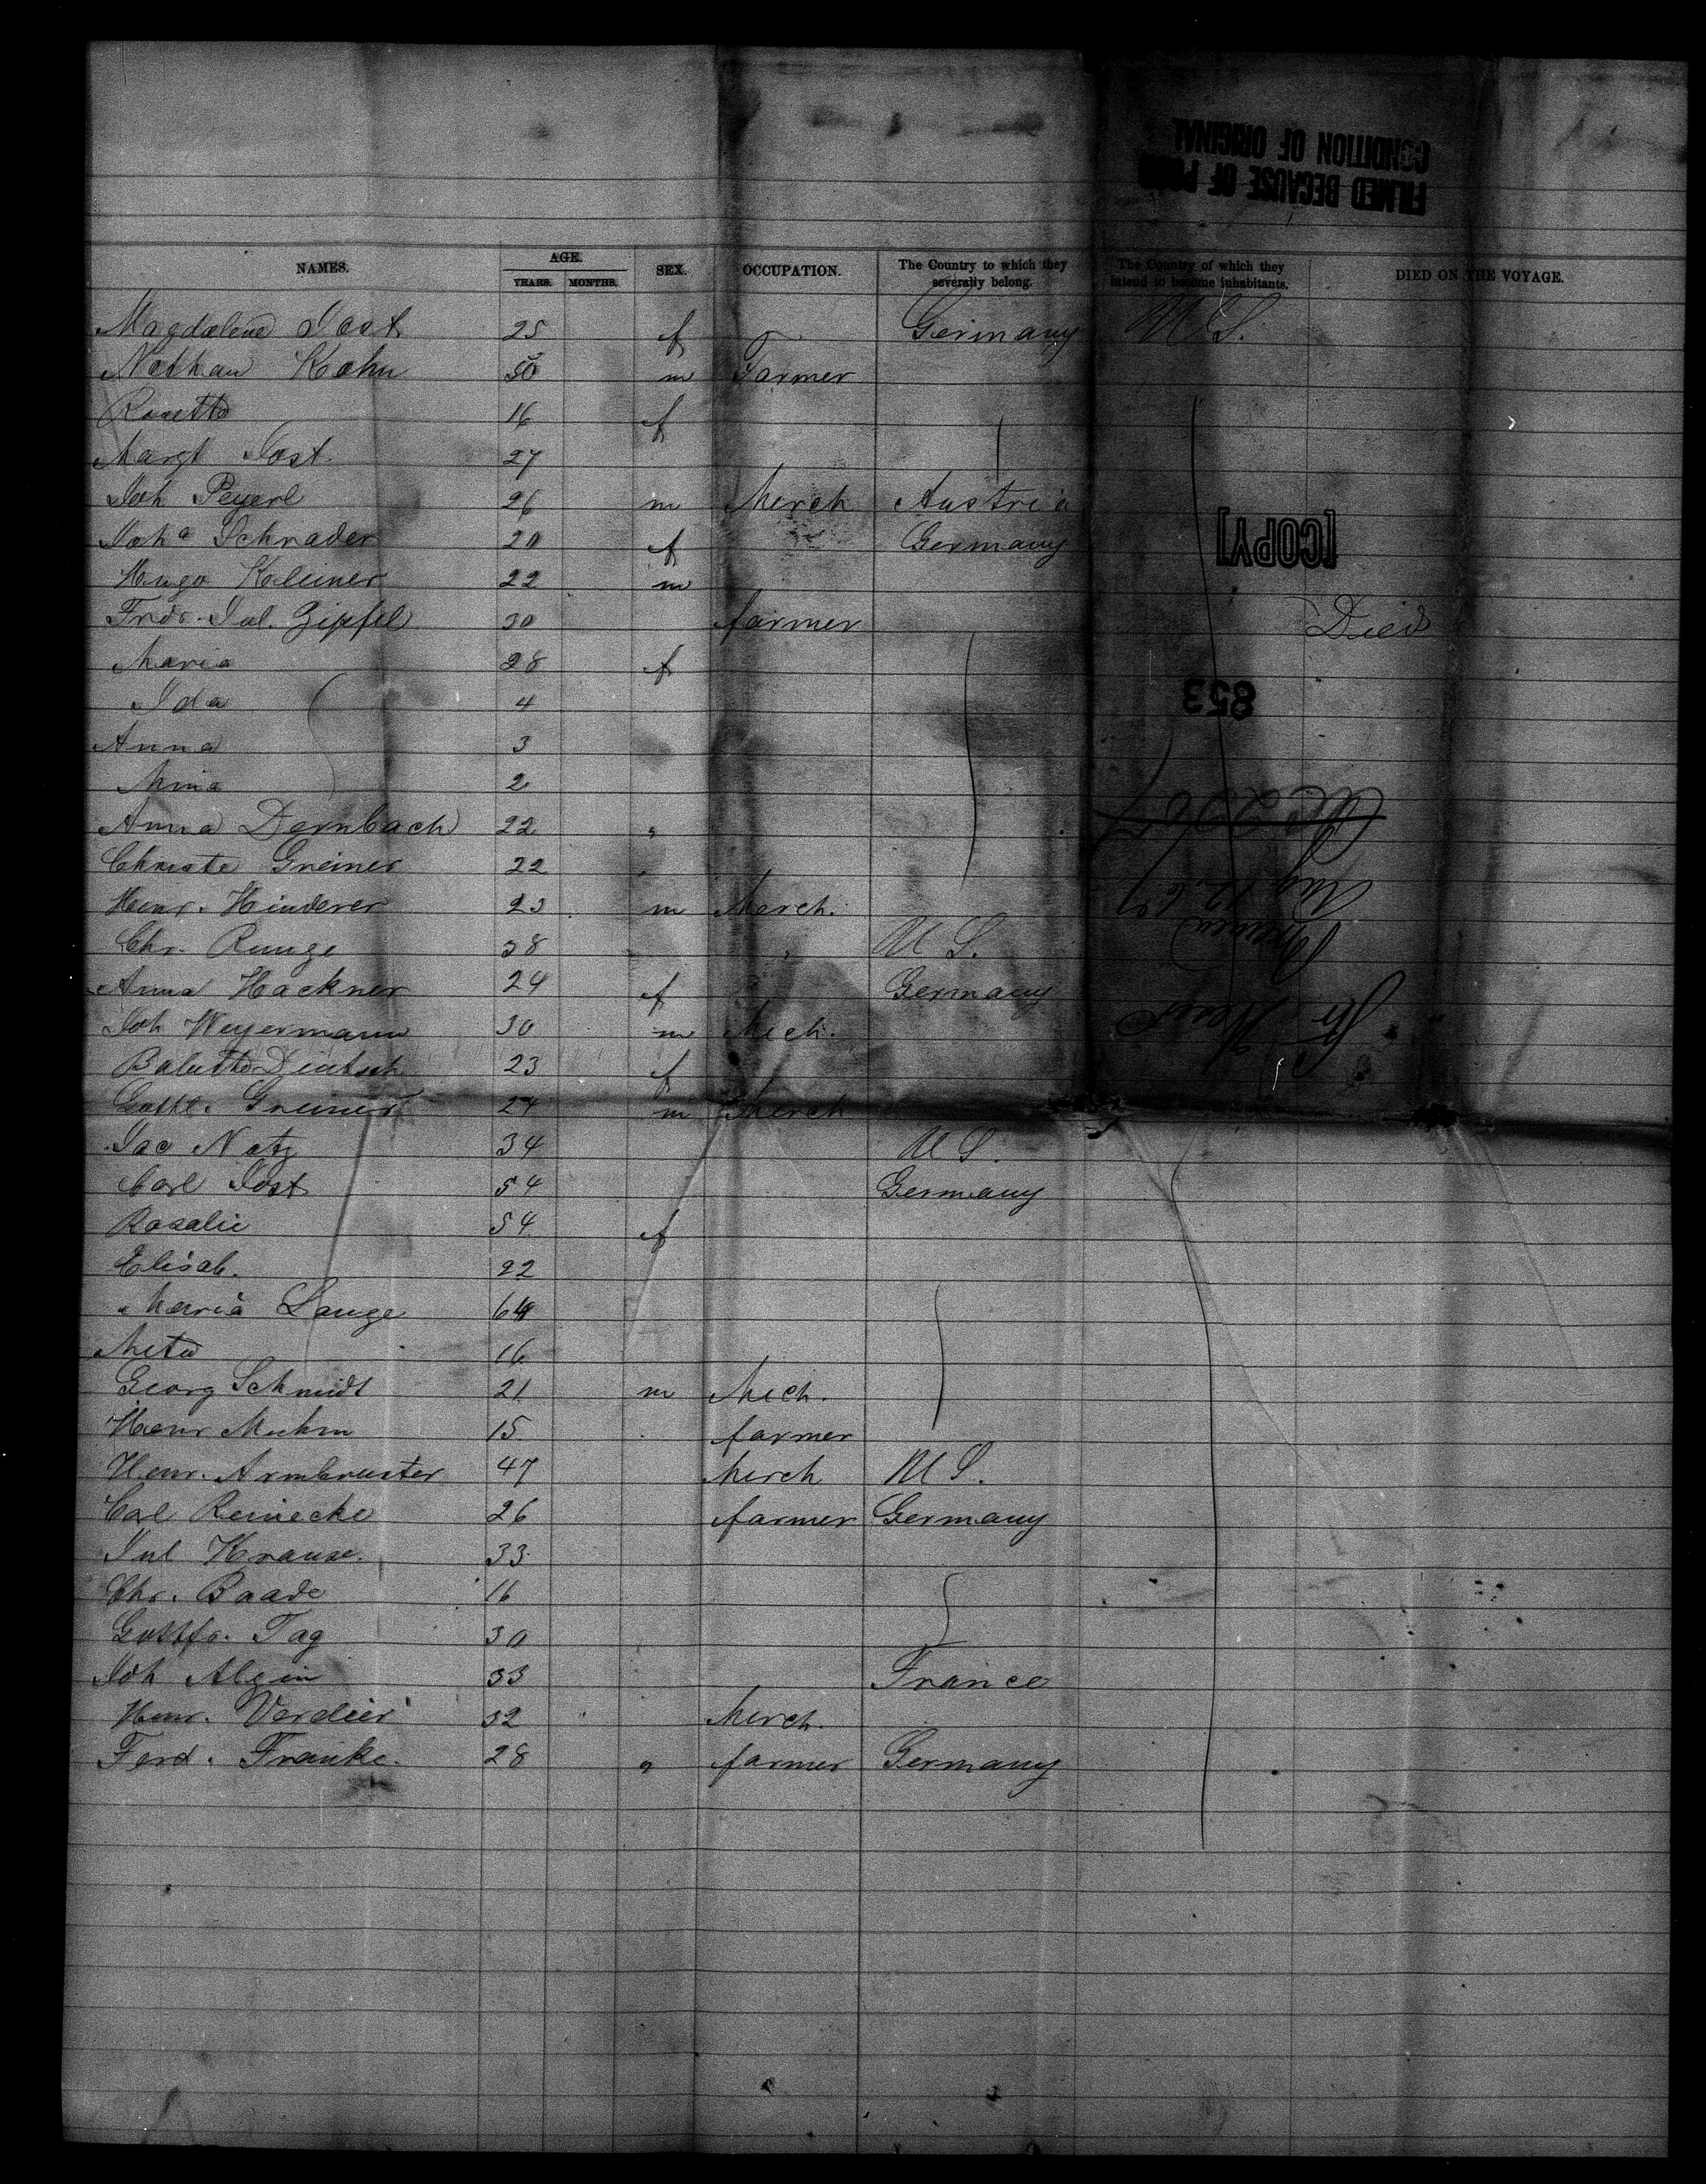 FILMED BECAUSE OF POOR
CONDITION OF ORIGINAL
NAMES. AGE. YEARS. MONTHS. SEX. OCCUPATION. The Country to which they severally belong. The Country of which they intend to become inhabitants. DIED ON THE VOYAGE.
Magdalene Jost 25 f Germany U S.
Nathan Kohn 50 m Farmer
Rosette 16 f
Margt Jost. 27
Joh Peyerl 26 m Merch Austria
Joha Schrader 20 f Germany
[COPY]
Hugo Kleiner 22 m
Frdr. Jul. Zipfel 30 farmer Died
Maria 28 f
Ida 4
853
Anna 3
Mina 2
Anna Dernbach 22 "
Christe Greiner 22
Aug 12, 67
Henr. Hinderer 23 m Merch.
Bremen
Chr. Runge 38 " U S.
Anna Hackner 24 f Germany
Str
Joh Weyermann 30 m Mech.
Babette Dietsch 23 f
Gottl. Greiner 24 m Merch
Jac Notz 34 U S.
Carl Jost 54 Germany
Rosalie 54 f
Elisab. 22
Maria Lange
Meta 16
Georg Schmidt 21 m Mech.
Henr 15 farmer
Henr. Armbruster 47 Merch U S.
Carl Reinecke 26 farmer Germany
Jul Krause. 33
Chr. Baade 16
Gottfr. Tag 30
Joh 33 France
Henr. Verdier 32 Merch.
Ferd. Franke. 28 " farmer Germany